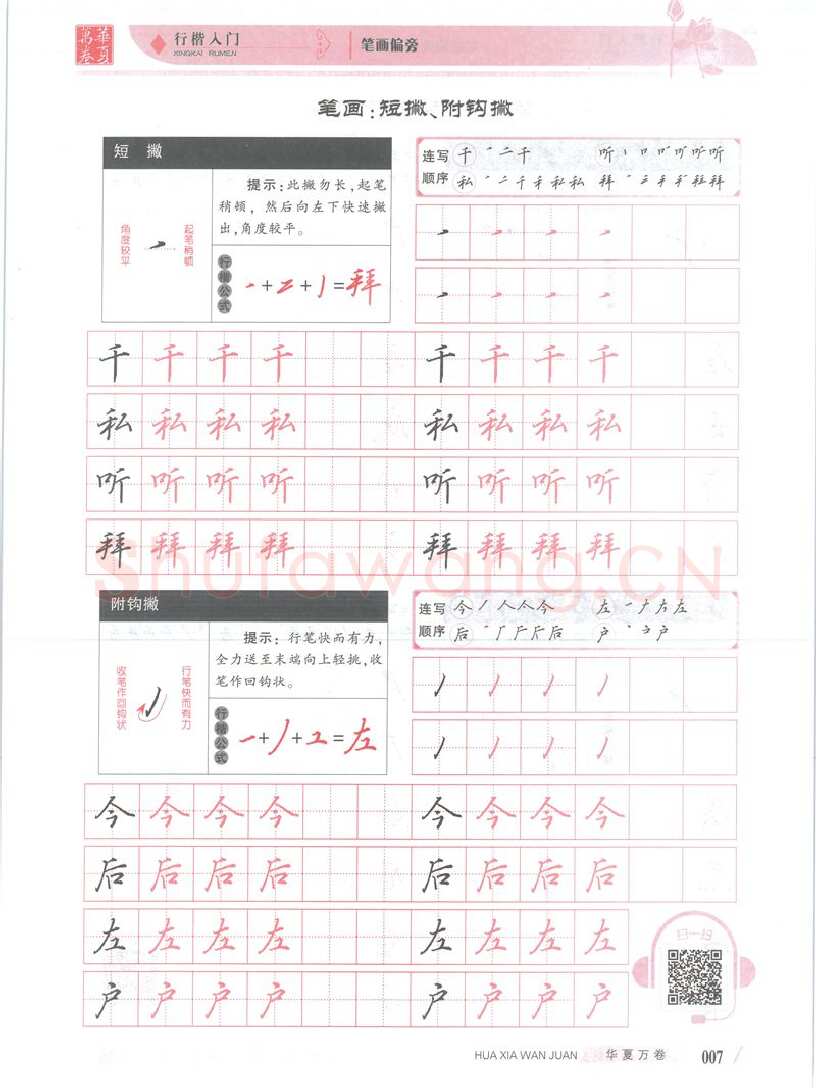 華夏
萬卷
行楷入门
XINGKAI RUMEN
笔画偏旁
笔画:短撇、附钩撇
短 撇
提示:此撇勿长,起笔
稍顿,然后向左下快速撇
出,角度较平。
角度较平
起笔稍顿
行楷公式
=拜
连写顺序
千 二 千
听 听
私 二 千 私 私
拜 拜
千 千 千 千 千 千 千 千
私 私 私 私 私 私 私 私
听 听 听 听 听 听 听 听
拜 拜 拜 拜 拜 拜 拜 拜
Shufawang.CN
附钩撇
提示:行笔快而有力,
全力送至末端向上轻挑,收
笔作回钩状。
收笔作回钩状
行笔快而有力
行楷公式
=左
连写顺序
今 丿 人 今
左 左
后 后
户 户
今 今 今 今 今 今 今 今
后 后 后 后 后 后 后 后
左 左 左 左 左 左 左 左
户 户 户 户 户 户 户 户
扫一扫
HUA XIA WAN JUAN 华夏万卷 007